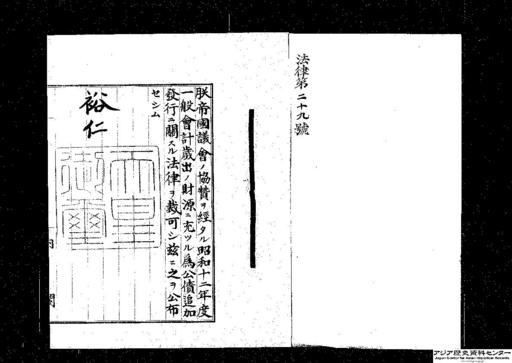 法律第二十九號
朕帝國議會ノ協贊ヲ經タル昭和十二年度
一般會計歲出ノ財源ニ充ツル爲公債追加
發行ニ關スル法律ヲ裁可シ茲ニ之ヲ公布
セシム
裕仁
天皇御璽
閣
アジア歴史資料センター
Japan Center for Asian Historical Records